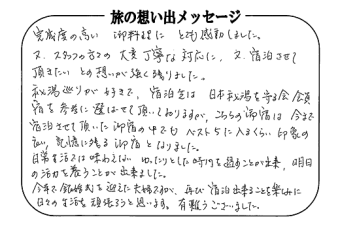 旅の想い出メッセージ
完成度の高い 御料理に とても感動しました。
又、スタッフの方々の 大変丁寧な対応に、又、宿泊させて
頂きたい との想いが強く残りました。
秘湯巡りが好きで、宿泊先は 日本秘湯を守る会 会員
宿を参考に選ばせて頂いておりますが、こちらの御宿は 今まで
宿泊させて頂いた御宿の中でも ベスト5に入るくらい印象の
高い、記憶に残る御宿となりました。
日常生活では味わえない ゆったりとした時間を過ごすことが出来、明日
の活力を養うことが出来ました。
今年で銀婚式を迎えた夫婦ですが、再び宿泊出来ることを楽しみに
日々の生活を頑張ろうと思います。有難うございました。